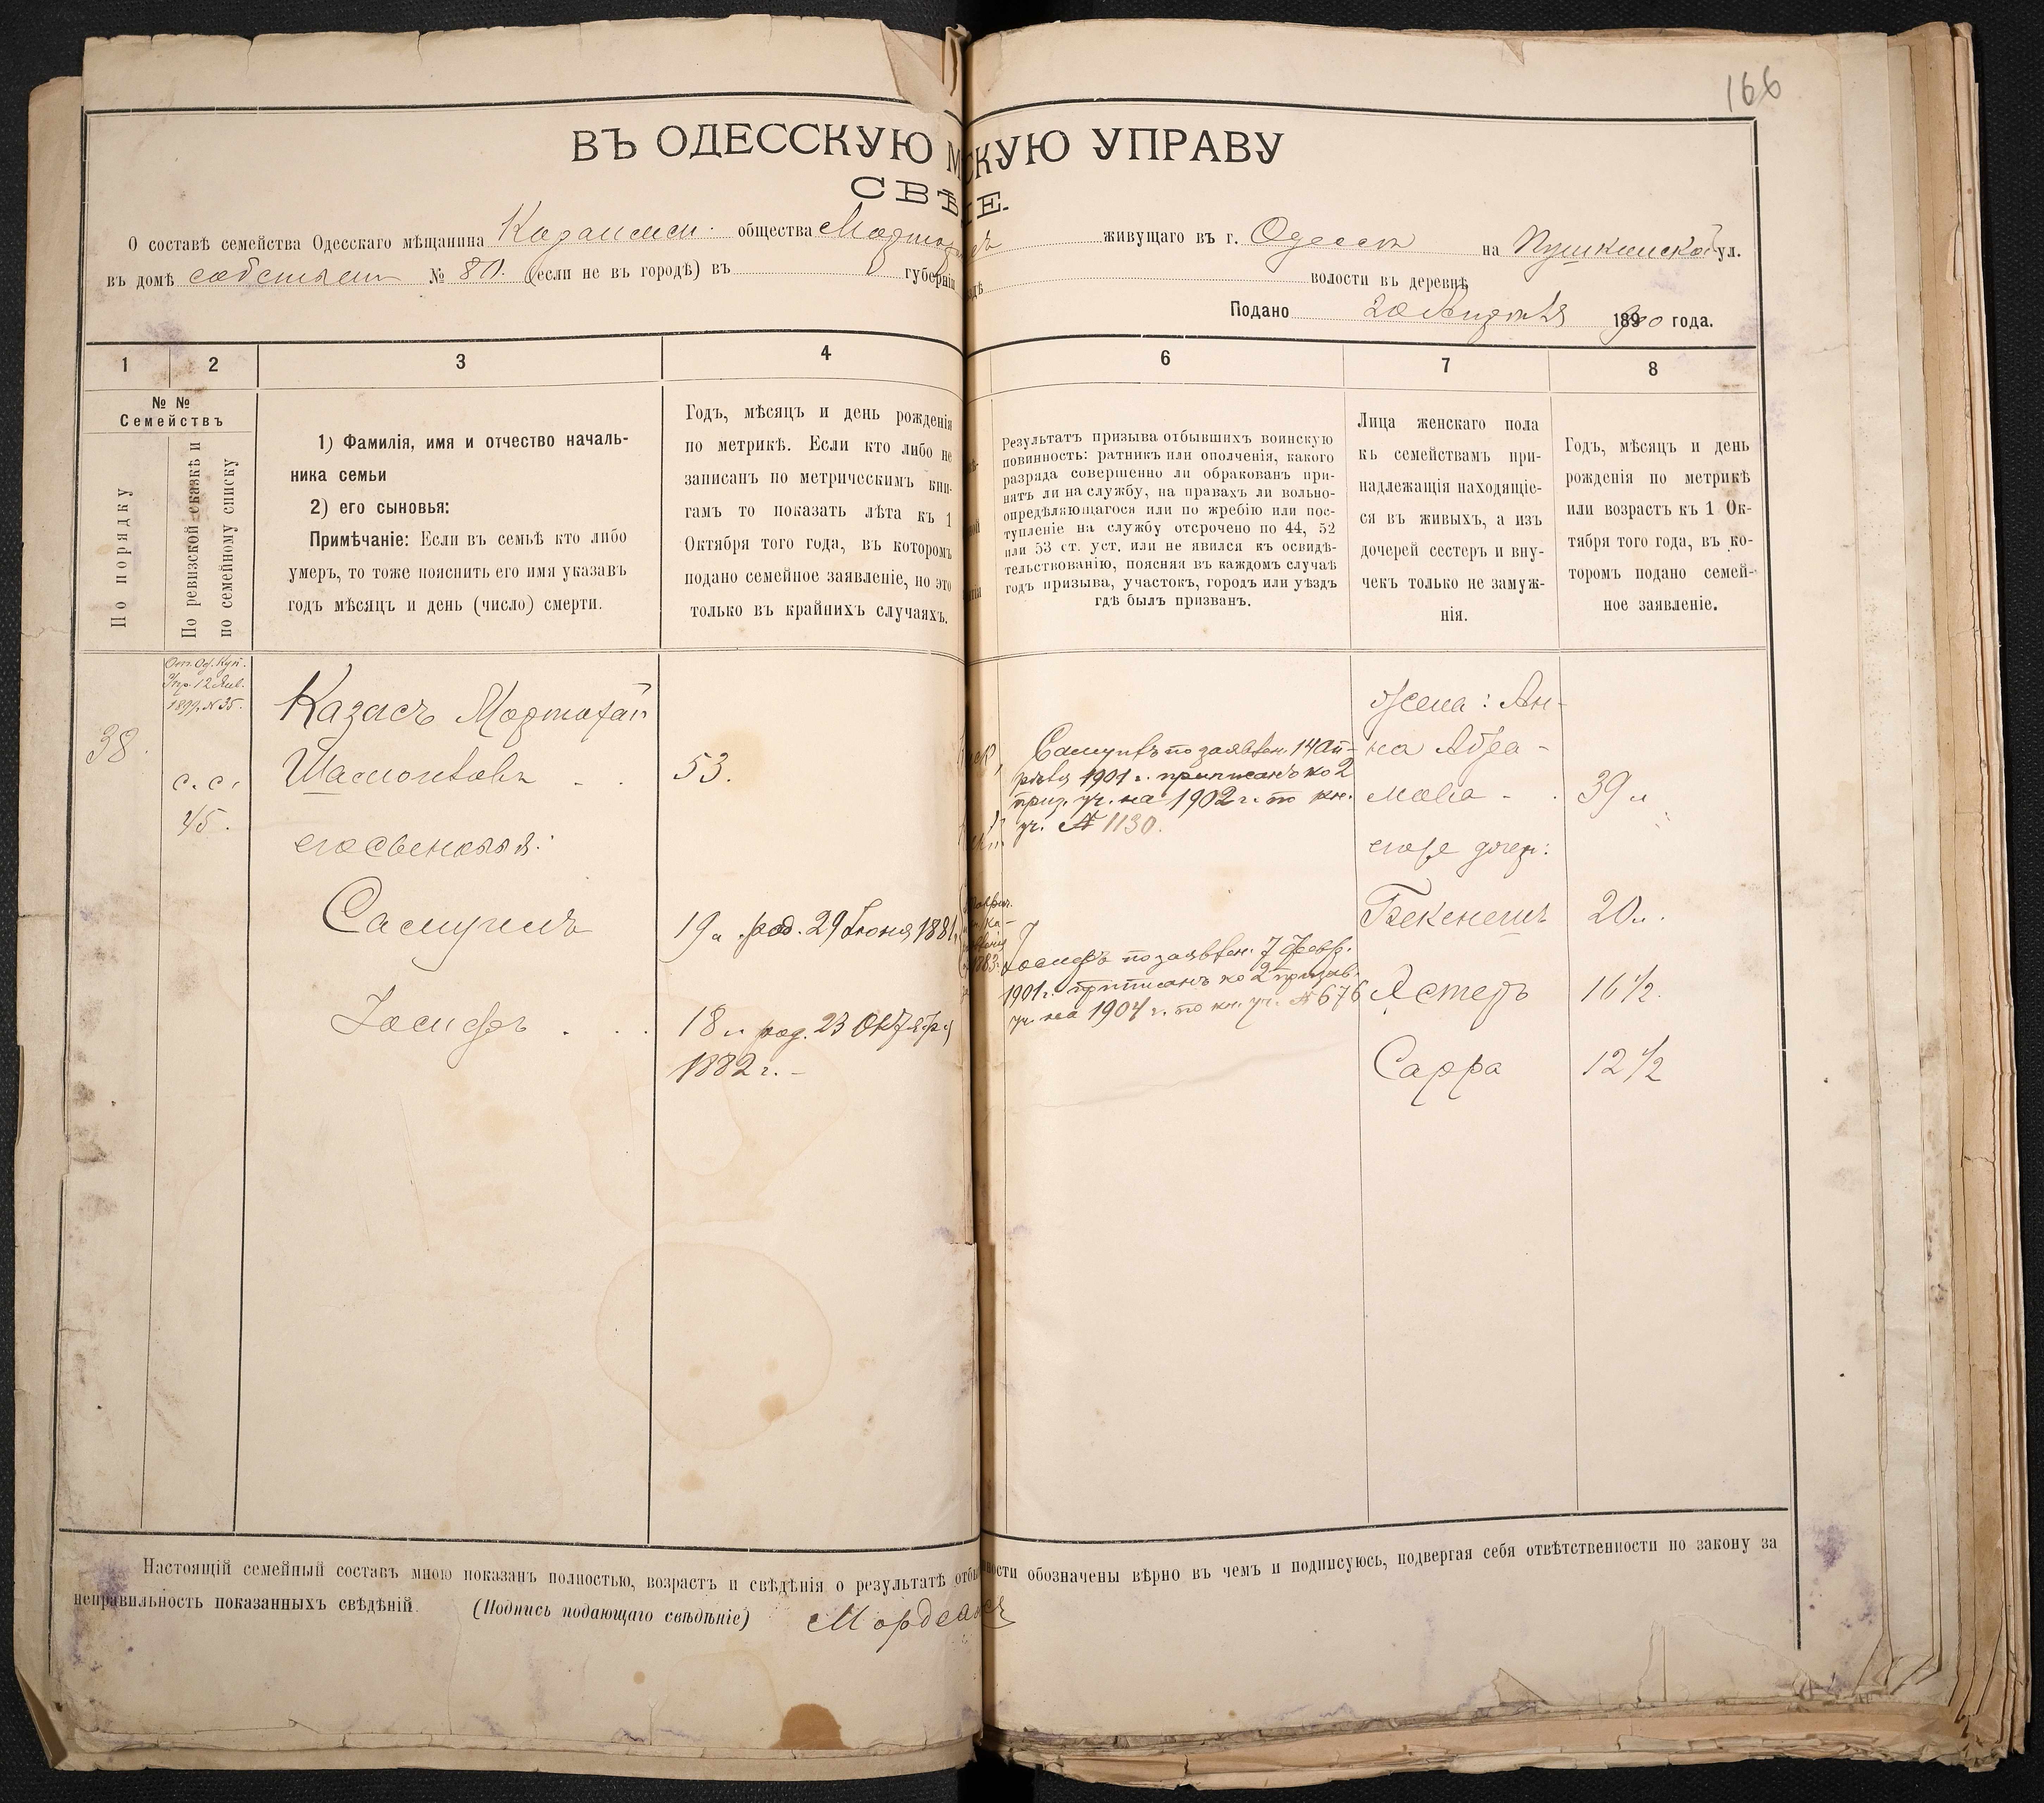 166
ВЪ ОДЕССКУЮ М СКУЮ УПРАВУ
СВѢ Е.
О составѣ семейства Одесскаго мѣщанина общества живущаго въ г. Одессѣ на Пушкинской ул.
въ домѣ № 80. (если не въ городѣ) въ губерніи волости въ деревнѣ
Подано 20 189 900 года.
1 2 3 4 6 7 8
№ №
Семействъ
По порядку
По ревизской сказкѣ и
по семейному списку
1) Фамилія, имя и отчество началь-
ника семьи
2) его сыновья:
Примѣчаніе: Если въ семьѣ кто либо
умеръ, то тоже пояснить его имя указавъ
годъ мѣсяцъ и день (число) смерти.
Годъ, мѣсяцъ и день рожденія
по метрикѣ. Если кто либо не
записанъ по метрическимъ кни-
гамъ то показать лѣта къ 1
Октября того года, въ которомъ
подано семейное заявленіе, но это
только въ крайнихъ случаяхъ.
Результатъ призыва отбывшихъ воинскую
повинность: ратникъ или ополченія, какого
разряда совершенно ли обракованъ при-
нятъ ли на службу, на правахъ ли вольно-
опредѣляющагося или по жребію или пос-
тупленіе на службу отсрочено по 44, 52
или 53 ст. уст. или не явился къ освидѣ-
тельствованію, поясняя въ каждомъ случаѣ
годъ призыва, участокъ, городъ или уѣздъ
гдѣ былъ призванъ.
Лица женскаго пола
къ семействамъ при-
надлежащія находящіе-
ся въ живыхъ, а изъ
дочерей сестеръ и вну-
чекъ только не замуж-
нія.
Годъ, мѣсяцъ и день
рожденія по метрикѣ
или возрастъ къ 1 Ок-
тября того года, въ ко-
торомъ подано семей-
ное заявленіе.
От. Од. Куп.
Упр. 12 Янв.
№ 35.
38.
с. с.
45.
Казасъ Мортхай
Шамоиловъ
53.
его сыновья:
Самуилъ
19 л. род. 29 Іюня 1881
Іосифъ
18 л. род. 23 Октября
1882 г.
Самуилъ по заявлен. 14 Ап-
рѣля 1901 г. приписанъ ко 2
приз. уч. на 1902 г. по кн.
уч. № 1130.
Іосифъ по заявлен. 7 Февр.
1901 г. приписанъ ко 2 призыв.
уч. на 1904 г. по кн. уч. № 676
Жена: Ан-
на Абра-
мова 39 л
его дочер:
Бекенешъ 20 л.
Эстеръ 16 1/2.
Сарра 12 1/2
Настоящій семейный составъ мною показанъ полностью, возрастъ и свѣдѣнія о результатѣ отбы ности обозначены вѣрно въ чемъ и подписуюсь, подвергая себя отвѣтственности по закону за
неправильность показанныхъ свѣдѣній. (Подпись подающаго свѣдѣніе)